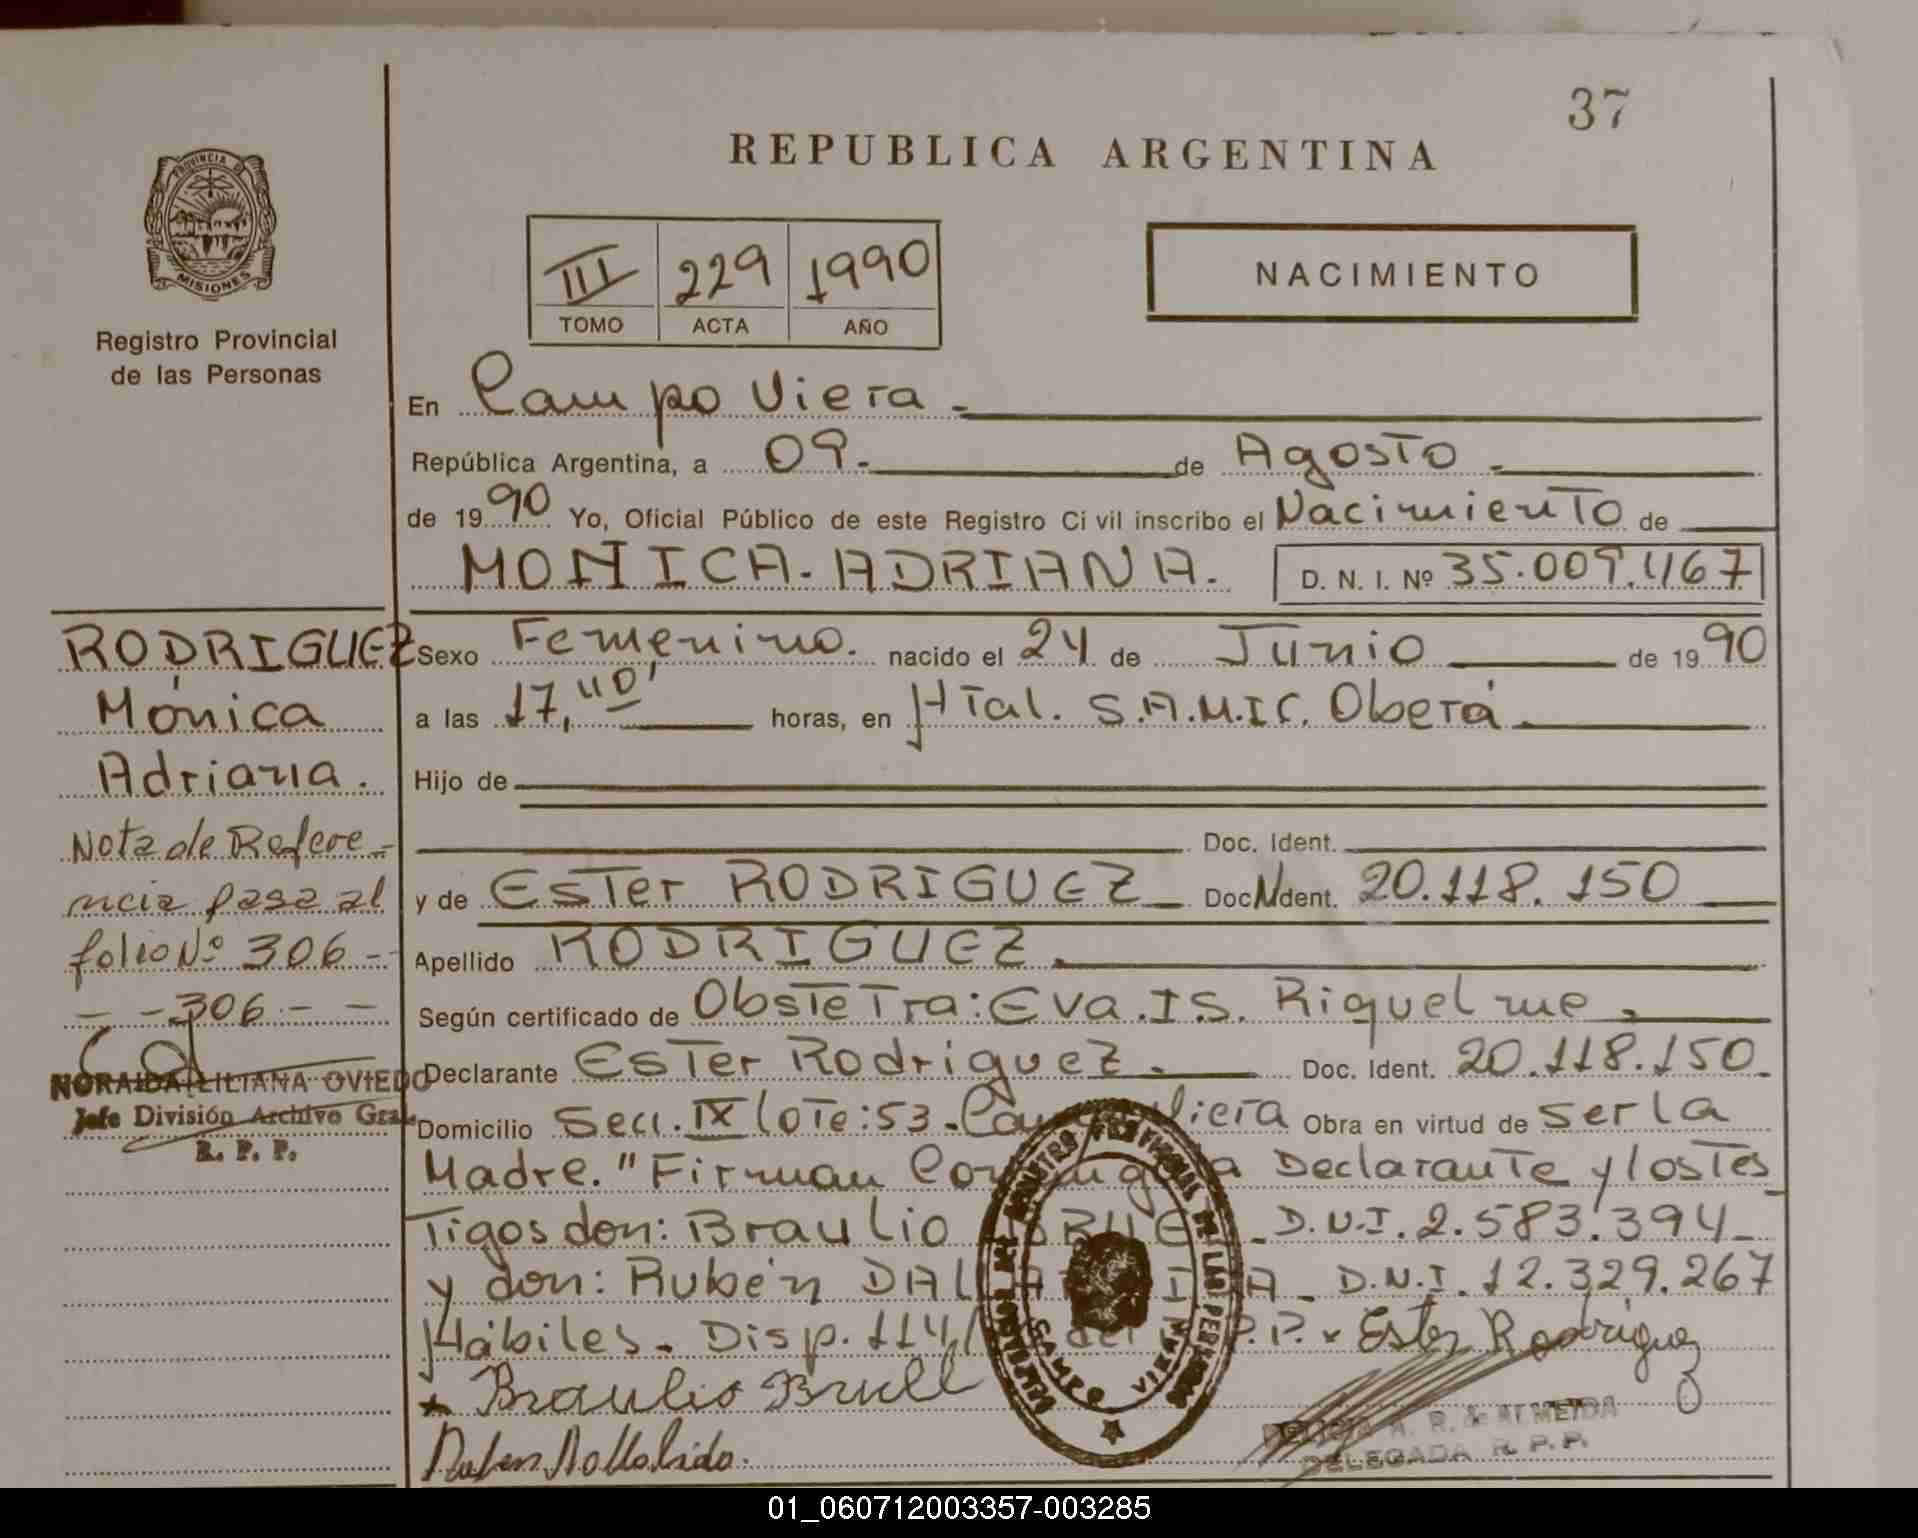 37
REPUBLICA ARGENTINA
PROVINCIA DE
MISIONES
Registro Provincial
de las Personas
III 229 1990
TOMO ACTA AÑO
NACIMIENTO
En Campo Viera.
República Argentina, a 09. de Agosto.
de 1990 Yo, Oficial Público de este Registro Ci vil inscribo el Nacimiento de
MONICA. ADRIANA. D. N. I. Nº 35.009.467
RODRIGUEZ
Mónica
Adriana.
Nota de Refere-
ncia pasa al
folio Nº 306 - -
- - 306 - -
NORAIDA LILIANA OVIEDO
Jefe División Archivo Gral.
R. P. P.
Sexo Femenino. nacido el 24 de Junio de 1990
a las 17,40' horas, en Htal. S.A.M.I.C. Oberá.
Hijo de
Doc. Ident.
y de Ester RODRIGUEZ Doc. Ident. 20.118.150
Apellido RODRIGUEZ.
Según certificado de ObsteTra: Eva. I.S. Riquelme.
Declarante Ester Rodriguez. Doc. Ident. 20.118.150
Domicilio Secc. IX lote: 53 - Campo Viera Obra en virtud de ser la
Madre. "Firman Declarante y los Tes
Tigos don: Braulio D.N.I. 2.583.394
y don: Rubén D.N.I. 12.329.267
Hábiles. Disp. 114/ P.P. x Ester Rodriguez
Braulio Brull
Ruben
REGISTRO PROVINCIAL DE LAS PERSONAS
CAMPO VIERA
DELICIA A. R. de ALMEIDA
DELEGADA R. P. P.
01_060712003357-003285